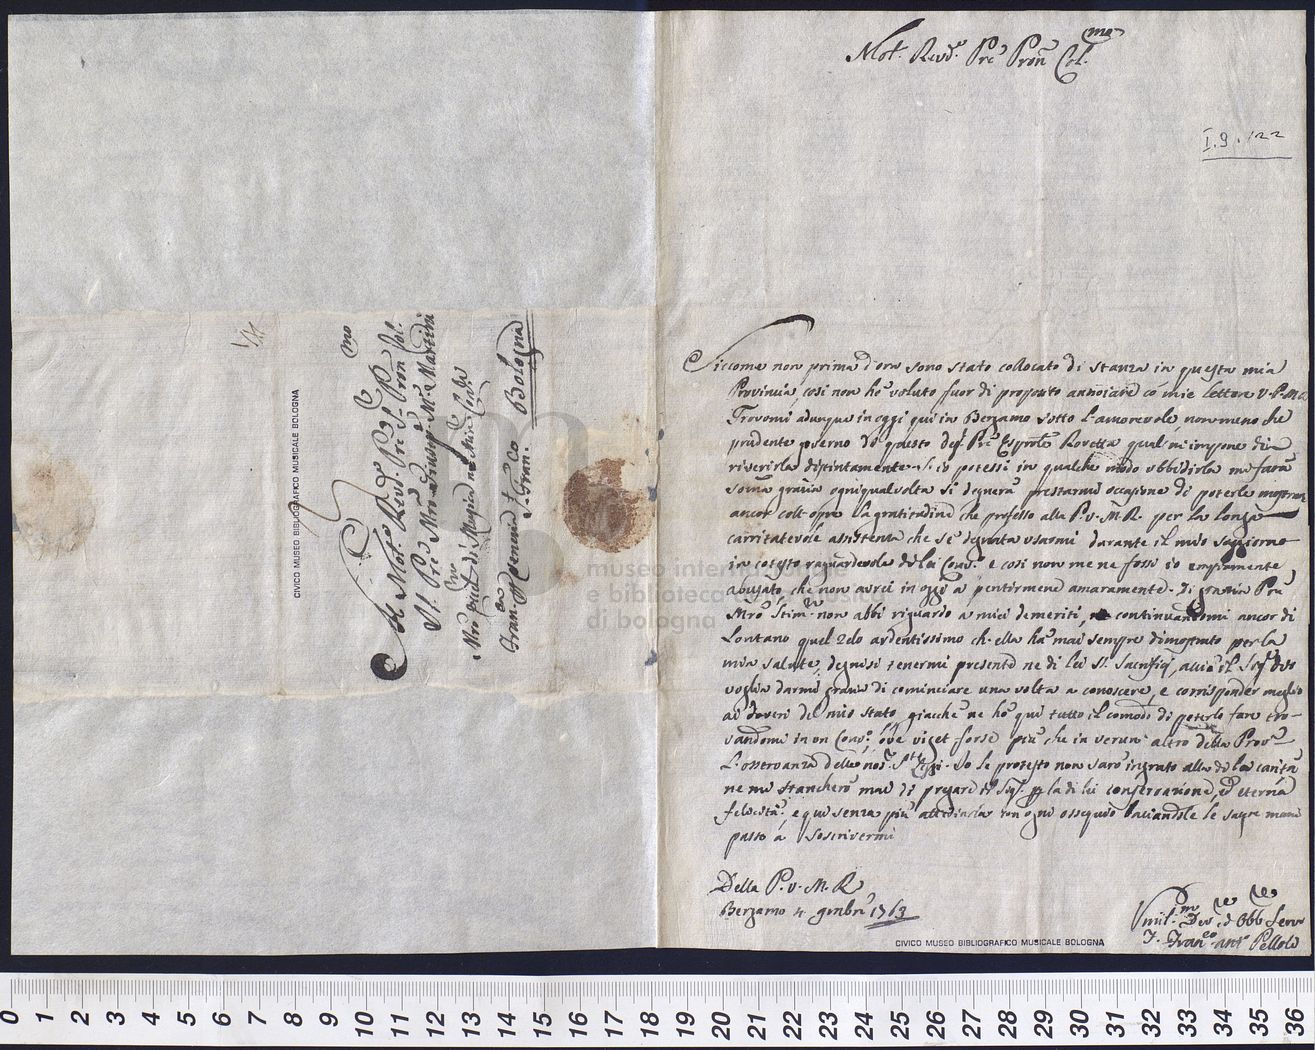 Mol. Revd. Pre Pron Col.mo
I.9.122
Siccome non prima d'ora sono stato collocato di stanza in questa mia
Provincia, cosi non ho voluto fuor di proposito annoiare co' mie lettere V. P. M. R.
Trovomi adunque in oggi qui in Bergamo sotto l'amorevole, non meno che
prudente governo di questo Pre Rovetta qual m'impone di
riverirla distintamente. S'io potessi in qualche modo obbidirla mi farà
somã grazia ogni qual volta si degnerà prestarmi occasione di poterle mostrare
ancor coll'opra la gratitudine che professo alla P. V. M. R. per la longa
carritatevole assistenza che s'è degnata usarmi durante il mio sogiorno
in cotesto raguardevole di lei Conv.o e cosi non me ne fossi io empiamente
abusato, che non avrei in oggi a pentirmene amaramente. Di grazia Pre
Mro Stim.mo non abbi riguardo a miei demeriti, continuandomi ancor di
lontano quel zelo ardentissimo ch'ella ha mai sempre dimostrato per la
mia salute, degnisi tenermi presente ne di lei SS. Sacrifizj, acciò il Sig.
voglia darmi grazia di cominciare una volta a conoscere, e corrisponder meglio
ai doveri del mio stato, giacchè ne ho qui tutto il comodo di poterlo fare tro-
vandomi in un Conv.o, ove viget forse più che in verun altro della Prov.a
L'osservanza delle nos.e S.te Leggi. Io le protesto non sarò ingrato alla di lei carità
ne mi stancherò mai di pregare il Sig.e per la di lei conservazione, ed eterna
felicità, e qui senza più attediarla con ogni ossequio baciandole le sagre mani
passo a soscrivermi
Della P. V. M. R.
Bergamo 4 9mbre 1763
Umil.mo Dev.o ed Obb. Serv.e
F. Fran.co Ant.o Pellolo
Al Mol. Revd. Pre Pron Col.mo
Il Pre Mro Giamp. Martini
Mro di Musica ne Min. Con.li
Fran. S. Fran.co
Bologna
CIVICO MUSEO BIBLIOGRAFICO MUSICALE BOLOGNA
museo internazionale
e biblioteca della musica
di bologna
CIVICO MUSEO BIBLIOGRAFICO MUSICALE BOLOGNA
0 1 2 3 4 5 6 7 8 9 10 11 12 13 14 15 16 17 18 19 20 21 22 23 24 25 26 27 28 29 30 31 32 33 34 35 36